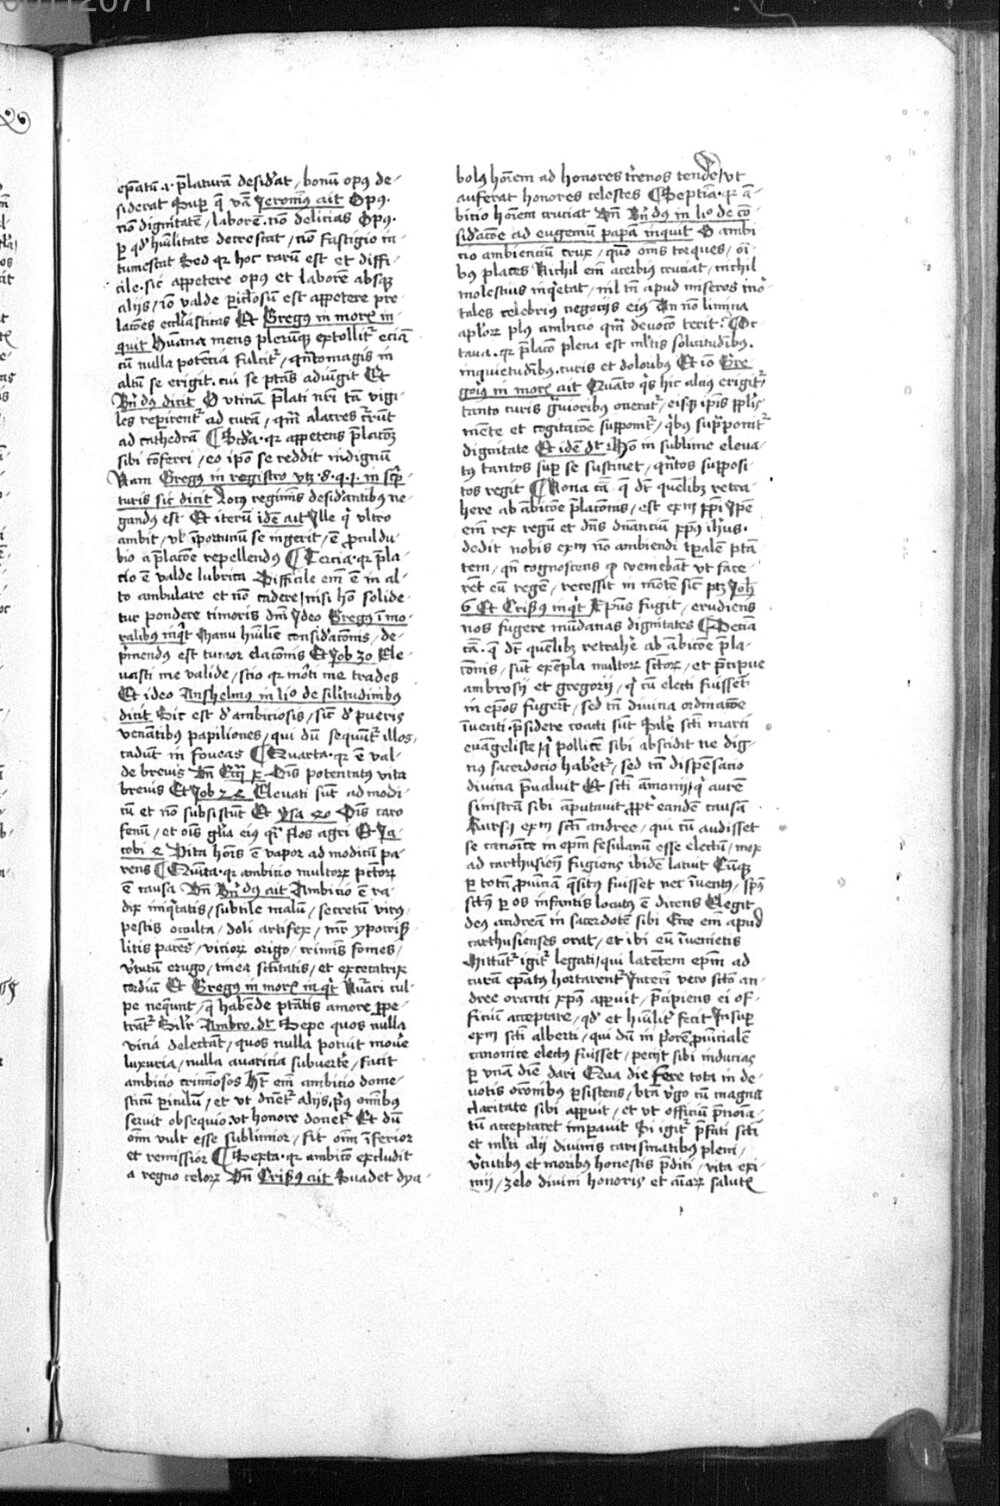 ep̄atū .i. p̄laturā desid̾at / bonū opꝰ de-
siderat Suꝑ q̄ v̄ā Jeronimꝰ ait Opꝰ.
nō dignitatē / laborē. nō delicias Opꝰ.
ꝑ qd̾ hūilitate decrescat / nō fastigio in-
tumescat Sed qꝛ hoc rarū est et diffi-
cile. sic appetere opꝰ et laborē absqꝫ
alijs / iō valde ꝑiclosū est appetere pre-
lacōes ecclīasticas Et Gregꝰ in morꝝ in-
quit Humana mens plerūqꝫ extollit̾ eciā
cū nulla potencia fulcit̾ / qn̄tomagis in
altū se erigit. cui se ptās adiūgit Et
Bn̄dus dicit O vtinā p̄lati nr̄i tā vigi-
les reperirent̾ ad curā / qm̄ alacres c̾rūt
ad cathedrā ¶ Scd̾a. qꝛ appetens p̄lacōꝫ
sibi cōferri / eo ip̄o se reddit indignū
Nam Gregꝰ in registro vtꝫ .8. q. j. in sc̾p-
turis sic dicit Locꝰ regiminis desid̾antibꝰ ne-
gandꝰ est Et iterū idē ait Ille q̾ vltro
ambit / vl̾ īportunū se ingerit / ē ꝓculdu-
bio a p̄lacōe repellendꝰ ¶ Tercia. qꝛ p̄la-
cio ē valde lubrica Difficile em̄ ē in al-
to ambulare et nō cadere / nisi hō solide-
tur pondere timoris dn̄i Ideo Gregꝰ ī mo-
ralibꝰ inq̾t Manu hūilie considācōnis / de-
p̾mendꝰ est tumor elacōnis Et Job 30 Ele-
uasti me valide / scio qꝛ mōti me trades
Et ideo Anshelmus in li̾o de sil̾itudinibꝰ
dicit Sic est d̾ ambiciosis / sic̄ d̾ pueris
venātibus papiliones / qui dū sequūt̾ illos,
cadunt in foueas ¶ Quarta. qꝛ ē val-
de breuis Vn̄ Ecc̄i x Oīs potentatꝰ vita
breuis Et Job 24 Eleuati sūt ad modi-
cū et nō subsistūt Et Ysa 40 Oīs caro
fenū / et oīs gl̄ia eiꝰ q̾ flos agri Et Ja-
cobi 4 Vita hōis ē vapor ad modicū pa-
rens ¶ Quīta. qꝛ ambicio multorꝝ pctōrꝝ
ē causa Vn̄ Bn̄dꝰ ait Ambicio ē ra-
dix iniq̾tatis / subtile malū / secretū virꝰ,
pestis occulta / doli artifex / mr̄ ypocris̾
litis parēs / viciorꝝ origo / criminis fomes /
v̾tutū erugo / tinea sc̄titatis / et excecatrix
cordiū Et Gregꝰ in morꝝ inq̾t Nūq̄ri cul-
pe neq̾unt / q̄ habēde ptātis amore ꝑpe-
trāt̾ Silr̄ Ambro. d̄t Sepe quos nulla
vicia delectāt / quos nulla potuit mouē
luxuria / nulla auaricia subuert̾e / facit
ambicio crimīosos H̄t em̄ ambicio dome-
sticū ꝑiculū / et vt dn̄et̾ alijs, p̾ꝰ omībꝰ
seruit obsequio. vt honore donet̾ Et dū
oīm vult esse sublimior / fit oīm īferior
et remissior ¶ Sexta. qꝛ ambicō excludit
a regno celorꝝ Vn̄ Criẞꝰ ait Suadet dya-
bolꝰ hoīem ad honores t̾renos tendē / vt
auferat honores celestes ¶ Septīa. qꝛ ā-
bicio hoīem cruciat Vn̄ Bn̄dꝰ in li̾o de cō-
sid̾acōe ad eugeniū papā inquit O ambi
cio ambienciū crux / quō om̄s torques / oī-
bꝰ places Nichil em̄ acerbiꝰ cruciat / nichil
molestius inq̾etat / nil tn̄ apud miseros mo-
tales celebriꝰ negocijs eiꝰ An nō limina
apl̾orꝝ plꝰ ambicio qm̄ deuocō terit? ¶ Oc-
taua. qꝛ p̄lacō plena est ml̾tis solicitudibꝰ.
inquietudībꝰ. curis et doloribꝰ Et iō Gre-
goriꝰ in morꝝ ait Quāto q̾s hic alciꝰ erigit̾
tanto curis g̾uioribus onerat̾ / eisqꝫ ip̄is ppl̾is
mēte et cogitacōe supponit̾ / q̾bꝰ sup̾ponit̾
dignitate Et idē d̄t Hō in sublime eleua-
tꝰ tantos suꝑ se sustinet / qn̄tos supposi-
tos regit ¶ Nona cā. q̄ d̄t quēlibꝫ retra-
here ab ābicōe p̄lacōnis / est exm̄ xp̄i Ip̄e
em̄ rex regū et dn̄s dn̄anciū xp̄ꝰ ih̄us.
dedit nobis exm̄ nō ambiendi tp̄alē ptā-
tem / qn̄ cognoscens qꝫ vēnebāt vt face-
rēt eū regē / recessit in mōtē sic̄ ptꝫ Joh̄
6 Et Criẞꝰ inq̾t Xp̄us fugit / erudiens
nos fugere mūdanas dignitates ¶ Decīa
cā. q̄ d̄t quēlibꝫ retrahē ab ābicōe p̄la-
cōnis / sūt exēpla multorꝝ sc̄torꝝ / et p̄cipue
ambrosij et gregorij / q̾ cū electi fuissēt
in ep̄os fugerūt / sed tn̄ diuina ordinacōe
īuenti. p̄sidere coacti sūt Silr̄ sc̄ti marci
euāngeliste / q̾ pollicē sibi abscidit ne dig-
nꝰ sacerdocio habēet̾ / sed tn̄ dispēsacio
diuina p̄ualuit Et sc̄ti āmonij / q̾ aurē
sinistrā sibi āputauit ꝓpt̾ eandē causā
Rursꝰ exm̄ sc̄ti andree / qui cū audisset
se canoīce in ep̄m fesulanū esse electū / mox
ad carthusiēn fugiens ibidē latuit Cūqꝫ
ꝑ totā ꝓuīciā q̾sitꝰ fuisset nec īuentꝰ, sp̄s
sc̄tꝰ ꝑ os infantis locutꝰ ē dicens Elegit
deꝰ andreā in sacerdotē sibi Ecce em̄ apud
carthusienses orat / et ibi eū īuenietis
Mittūt̾ igit̾ legati / qui latētem ep̄m ad
curā ep̄atꝰ hortarent̾ Interī vero sc̄to an-
dree oranti xp̄ꝰ appuit / p̄cipiens ei of-
ficiū acceptare / qd̾ et hūilit̾ fecit Insuꝑ
exm̄ sc̄ti alberti / qui dū in pōrē ꝓuīcialē
canonice electꝰ fuisset / peciit sibi inducias
ꝑ vnā diē dari Qua die fere tota in de-
uotis orōnibꝰ ꝑsistens / btā v̾go cū magna
claritate sibi appuit / et vt officiū p̄ncia-
tū acceptaret imꝑauit Si igit̾ p̄fati sc̄ti
et ml̾ti alij diuinis carismatibꝰ pleni /
v̾tutibꝰ et moribꝰ honestis p̄diti / vita exi-
mij / zelo diuini honoris et āīarꝝ salutꝭ